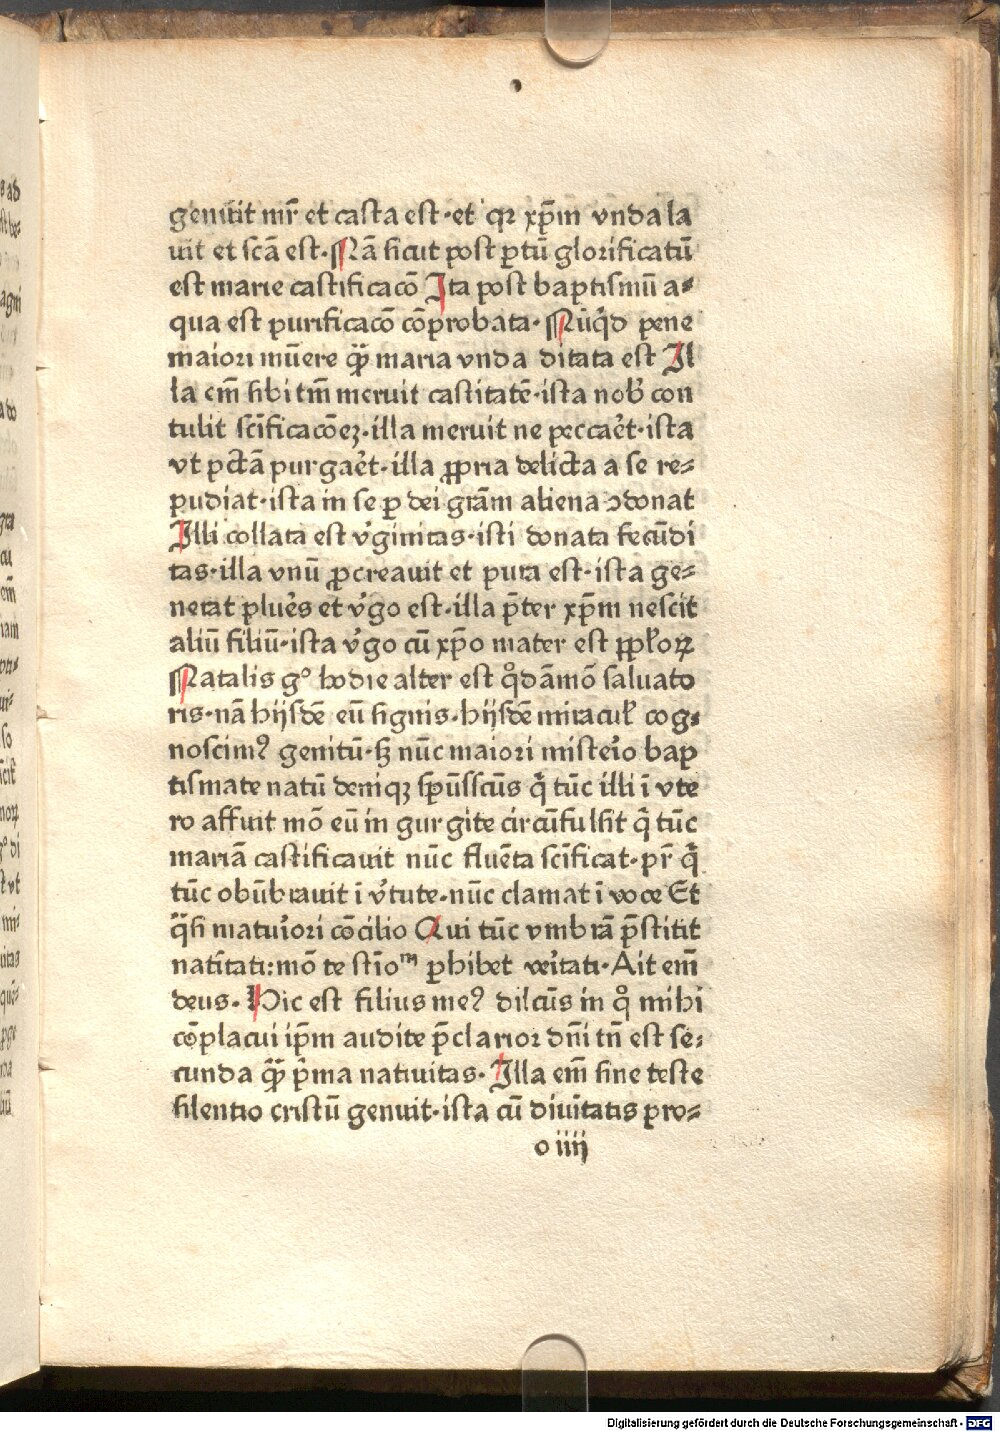 genuit mr̄ et casta est·et qꝛ xp̄m vnda la
uit et scā est·Nā sicut post ꝑtū glorificatū
est marie castificacō Ita post baptismū a⸗
qua est purificacō cōprobata·Nūq̇d pene
maiori mūere q̄ꝫ maria vnda ditata est Il
la em̄ sibi tm̄ meruit castitatē·ista nob̾ con
tulit sc̄ificacōeꝫ·illa meruit ne peccaet̾·ista
vt pctā̄ purgaet̾·illa ꝓpria delicta a se re⸗
pudiat·ista in se ꝑ dei grām aliena ↄdonat
Illi collata est v̾ginitas·isti donata fecūdi
tas·illa vnū ꝓcreauit et pura est·ista ge⸗
nerat plues̾ et v̾go est·illa p̄ter xp̄m nescit
aliū filiū·ista v̾go cū xp̄o mater est pp̄loꝝ
Natalis gͦ hodie alter est qͦdāmō saluato
ris·nā hijsdē eū signis·hijsdē miracul̾ cog⸗
noscimꝰ genitū·sꝫ nūc maiori misteio̾ bap
tismate natū deniqꝫ spūsscūs q̇ tūc illi ī vte
ro affuit mō eū in gurgite circūfulsit q̇ tūc
mariā castificauit nūc fluēta sc̄ificat·pr̄ q̇
tūc obūbrauit ī v̾tute·nūc clamat ī voce Et
q̈si matuio̾ri cōcilio Qui tūc vmbrā p̄stitit
natīitati:mō te stīoᵐ ꝑhibet veīt̾ati·Ait em̄
deus·Hic est filius meꝰ dilcūs in qͦ mihi
cōplacui ip̄m audite p̄clarior dn̄i tn̄ est se⸗
cunda q̄ꝫ p̄ma natiuitas·Illa em̄ sine teste
silentio cristū genuit·ista cū diuītatis pro⸗
o iiij
Digitalisierung gefördert durch die Deutsche Forschungsgemeinschaft - DFG